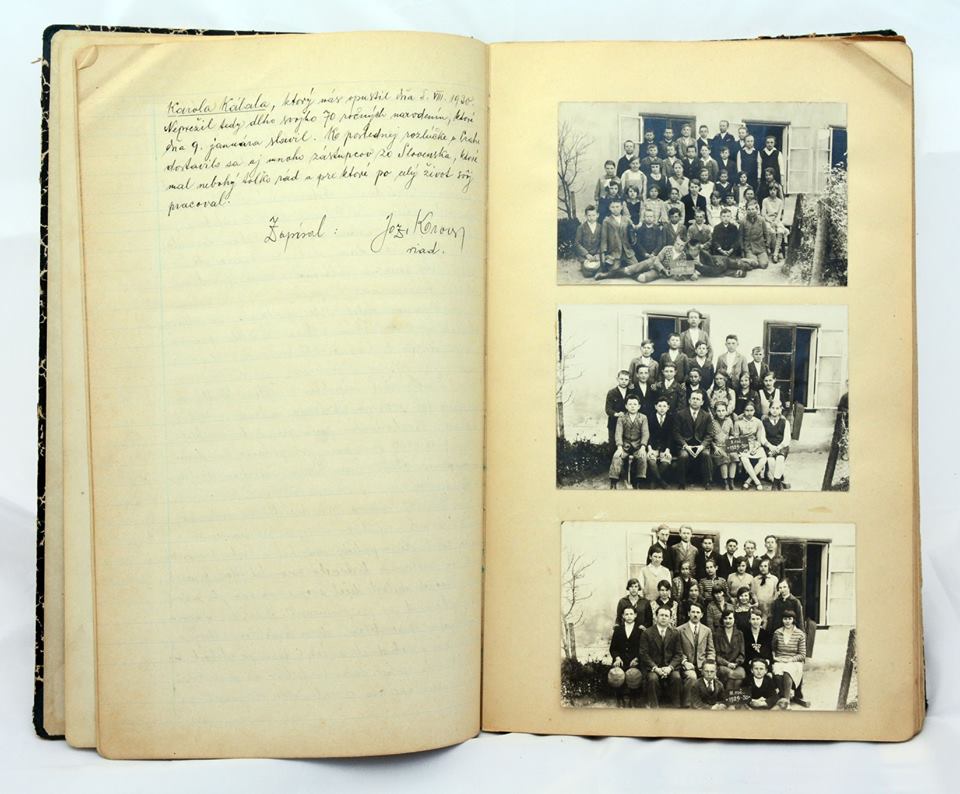 Karola Kálala, ktorý nás opustil dňa 5. VIII. 1930.
Neprežil tedy dlho svojho 70 ročných narodenín, ktoré
dňa 9. januára slavil. Ku poslednej rozlúčke v Prahe
dostavilo sa aj mnoho zástupcov zo Slovenska, ktoré
mal nebohý toľko rád a pre ktoré po celý život svoj
pracoval.
Zapísal :
riad.
II. roč.
1929-30
III. roč.
1929-30